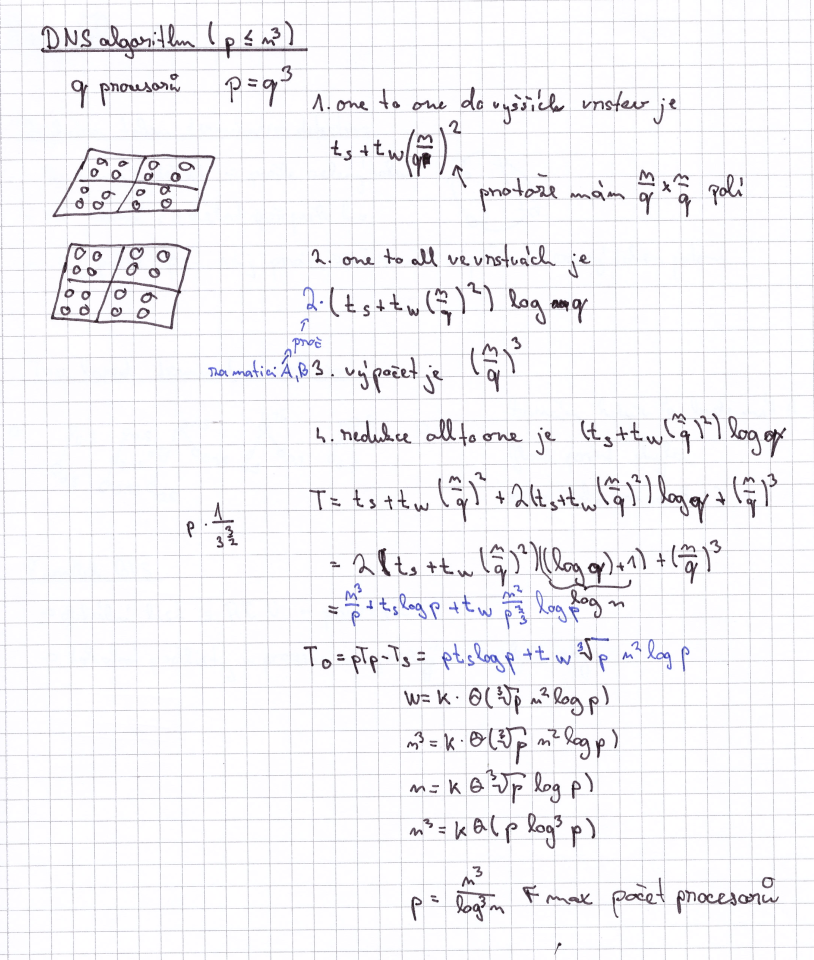 DNS algoritm ( p ≤ n³ )
q procesorů p = q³
1. one to one do vyšších vrstev je
t_s + t_w (n/q)²
protože mám n/q × n/q polí
2. one to all ve vrstvách je
2·(t_s + t_w (n/q)²) log q
proč
na matici A,B
3. výpočet je (n/q)³
4. redukce all to one je (t_s + t_w (n/q)²) log q
T = t_s + t_w (n/q)² + 2(t_s + t_w (n/q)²) log q + (n/q)³
p · 1/3^(3/2)
= 2 (t_s + t_w (n/q)²)((log q)+1) + (n/q)³
log n
= n³/p + t_s log p + t_w n²/p^(2/3) log p
T_o = pTp - T_s = p t_s log p + t_w ³√p n² log p
W = K · Θ(³√p n² log p)
n³ = K · Θ(³√p n² log p)
n = K Θ ³√p log p)
n³ = K Θ( p log³ p)
p = n³/log³n ← max počet procesorů